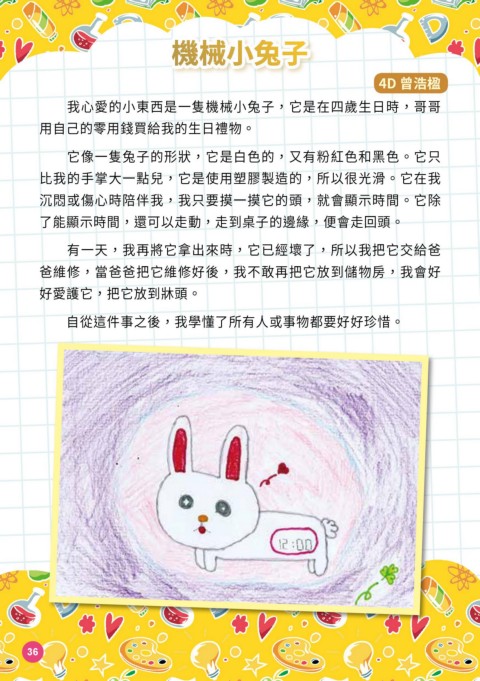 機械小兔子
4D 曾浩楹
我心愛的小東西是一隻機械小兔子，它是在四歲生日時，哥哥
用自己的零用錢買給我的生日禮物。
它像一隻兔子的形狀，它是白色的，又有粉紅色和黑色。它只
比我的手掌大一點兒，它是使用塑膠製造的，所以很光滑。它在我
沉悶或傷心時陪伴我，我只要摸一摸它的頭，就會顯示時間。它除
了能顯示時間，還可以走動，走到桌子的邊緣，便會走回頭。
有一天，我再將它拿出來時，它已經壞了，所以我把它交給爸
爸維修，當爸爸把它維修好後，我不敢再把它放到儲物房，我會好
好愛護它，把它放到牀頭。
自從這件事之後，我學懂了所有人或事物都要好好珍惜。
12:00
36